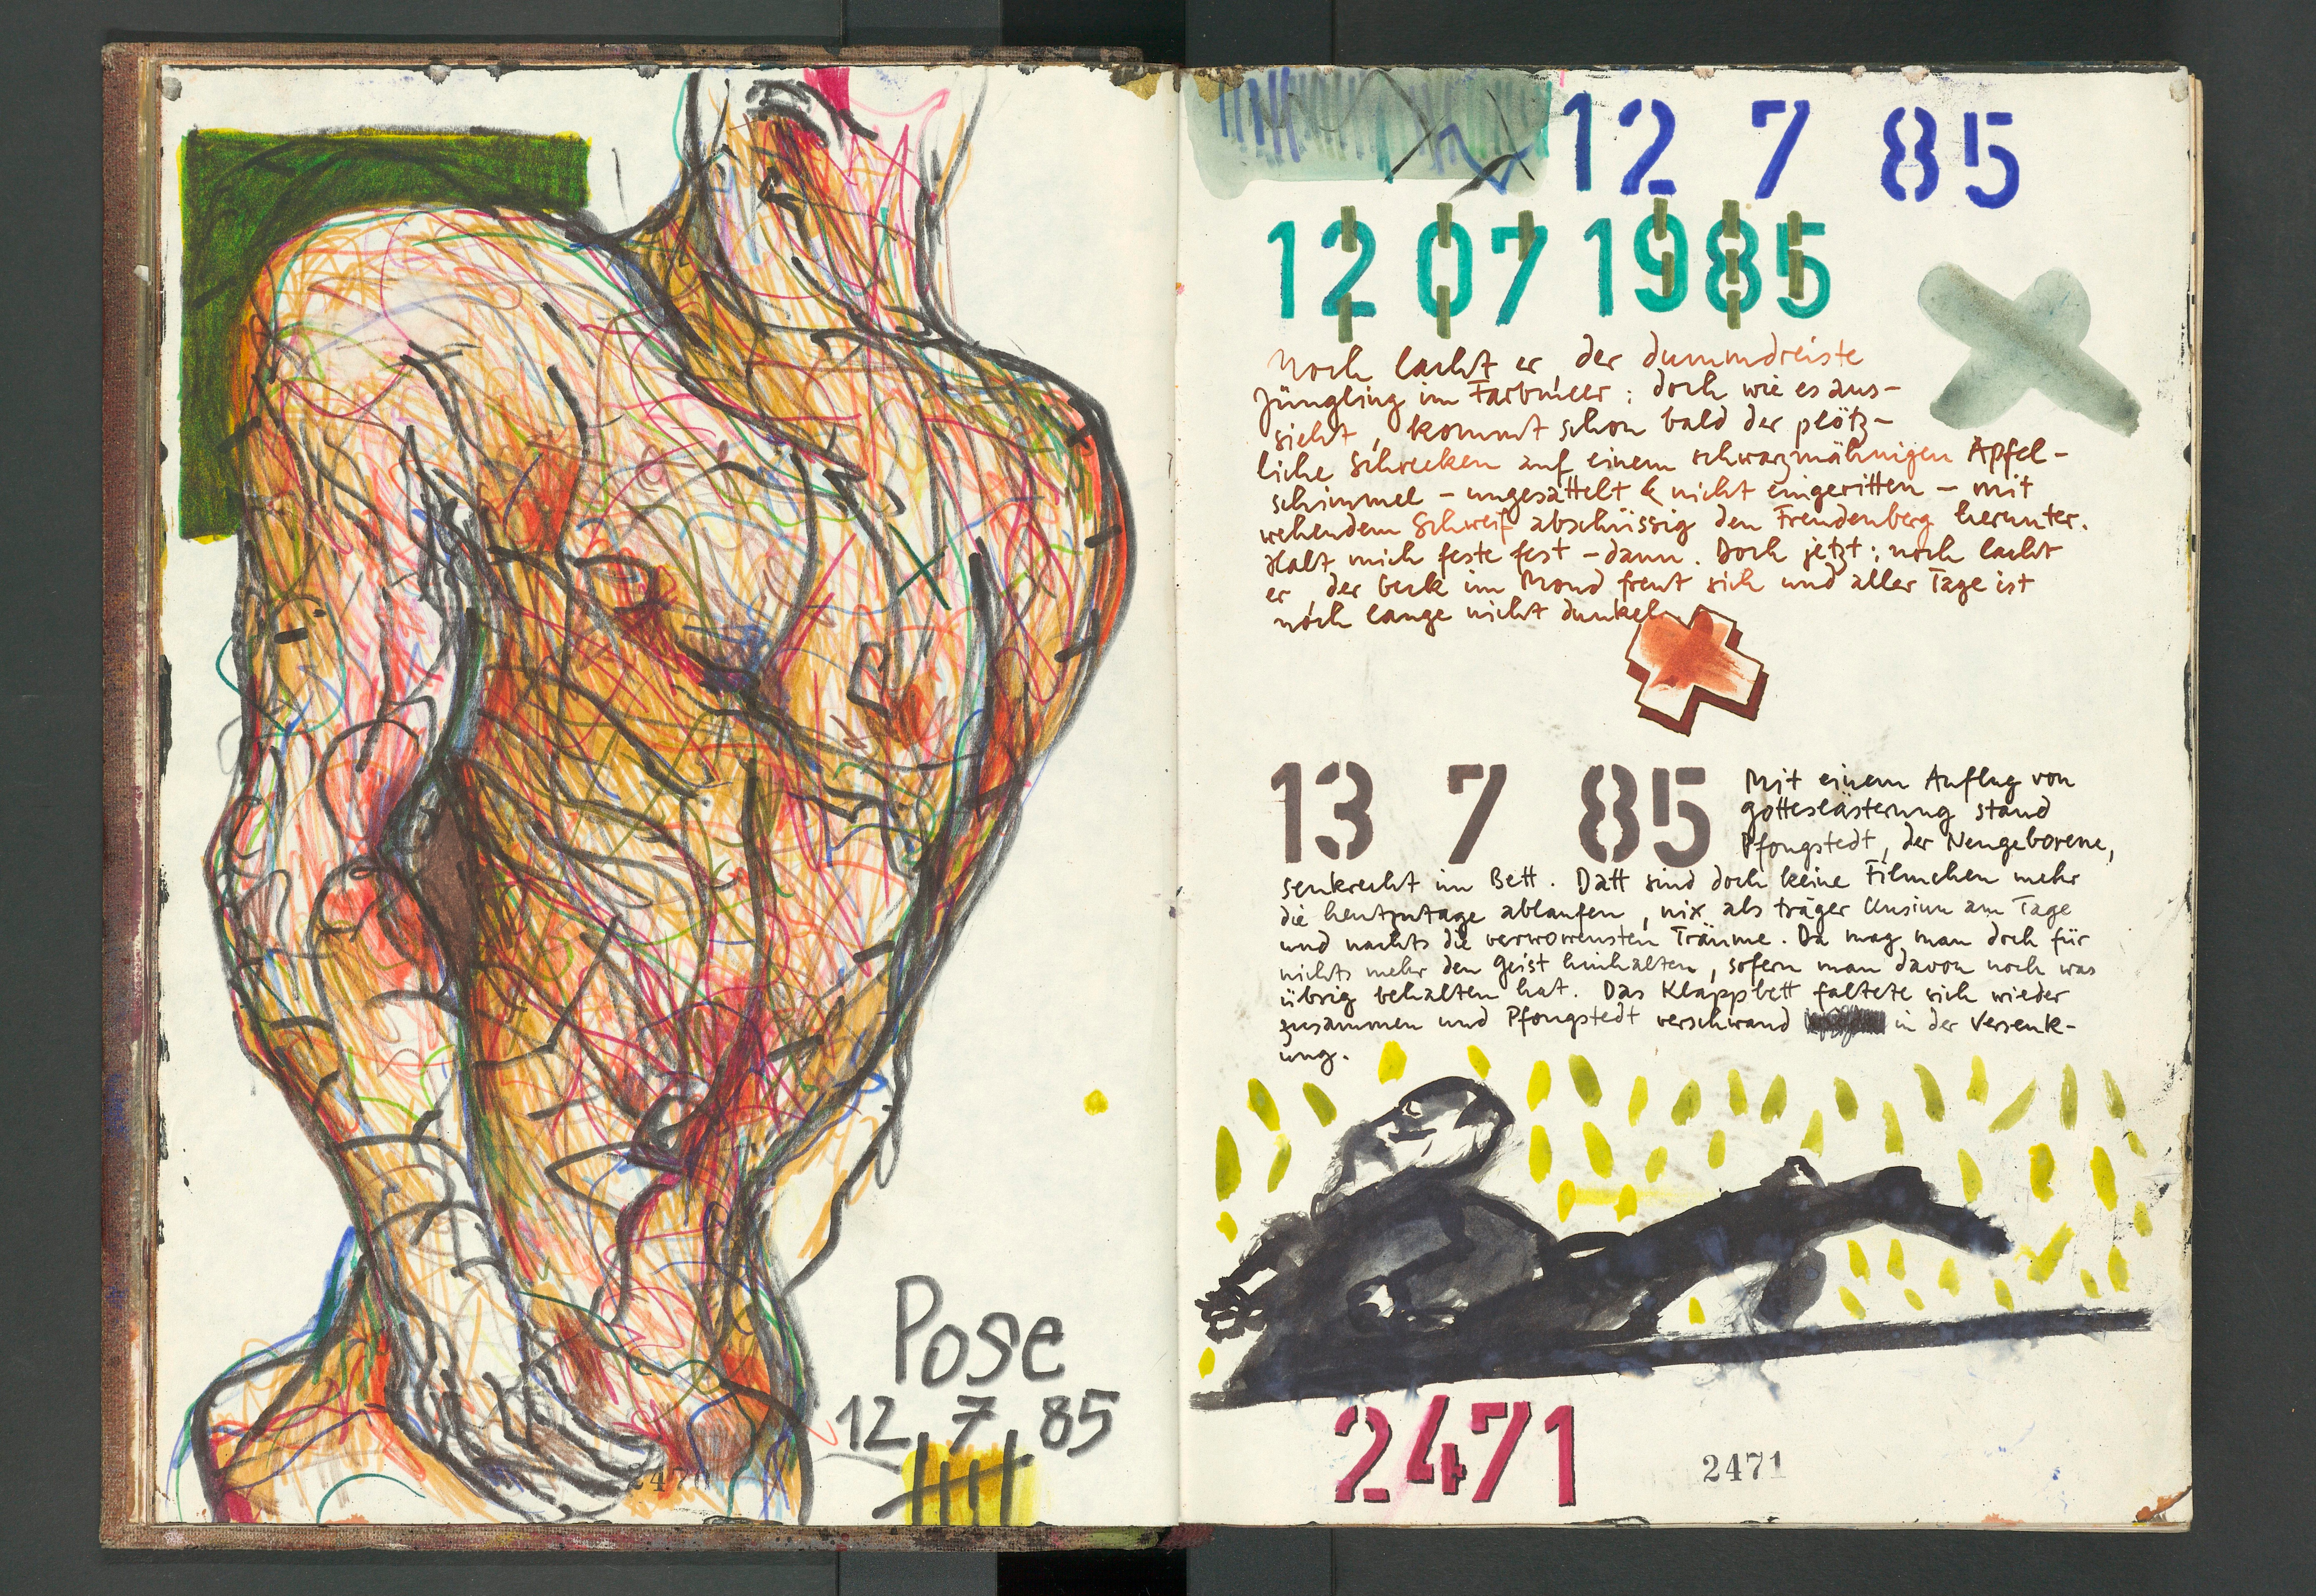 Pose
12 7 85
2470
12 7 85
12 07 1985
Noch lacht er, der dummdreiste
Jüngling im Farbmeer: doch wie es aus-
sieht, kommt schon bald der plötz-
liche Schrecken auf einem schwarzmähnigen Apfel-
schimmel – ungesattelt & nicht eingeritten – mit
wehendem Schweif abschüssig den Freudenberg herunter.
Halt mich feste fest – dann. Doch jetzt: noch lacht
er, der beck im Mond freut sich und aller Tage ist
noch lange nicht dunkel.
13 7 85
Mit einem Anflug von
Gotteslästerung stand
Pfongstedt, der Neugeborene,
senkrecht im Bett. Datt sind doch keine Filmchen mehr
die heutzutage ablaufen, nix als träger Unsinn am Tage
und nachts die verworrensten Träume. Da mag man doch für
nichts mehr den Geist hinhalten, sofern man davon noch was
übrig behalten hat. Das Klappbett faltete sich wieder
zusammen und Pfongstedt verschwand in der Versenk-
ung.
2471
2471